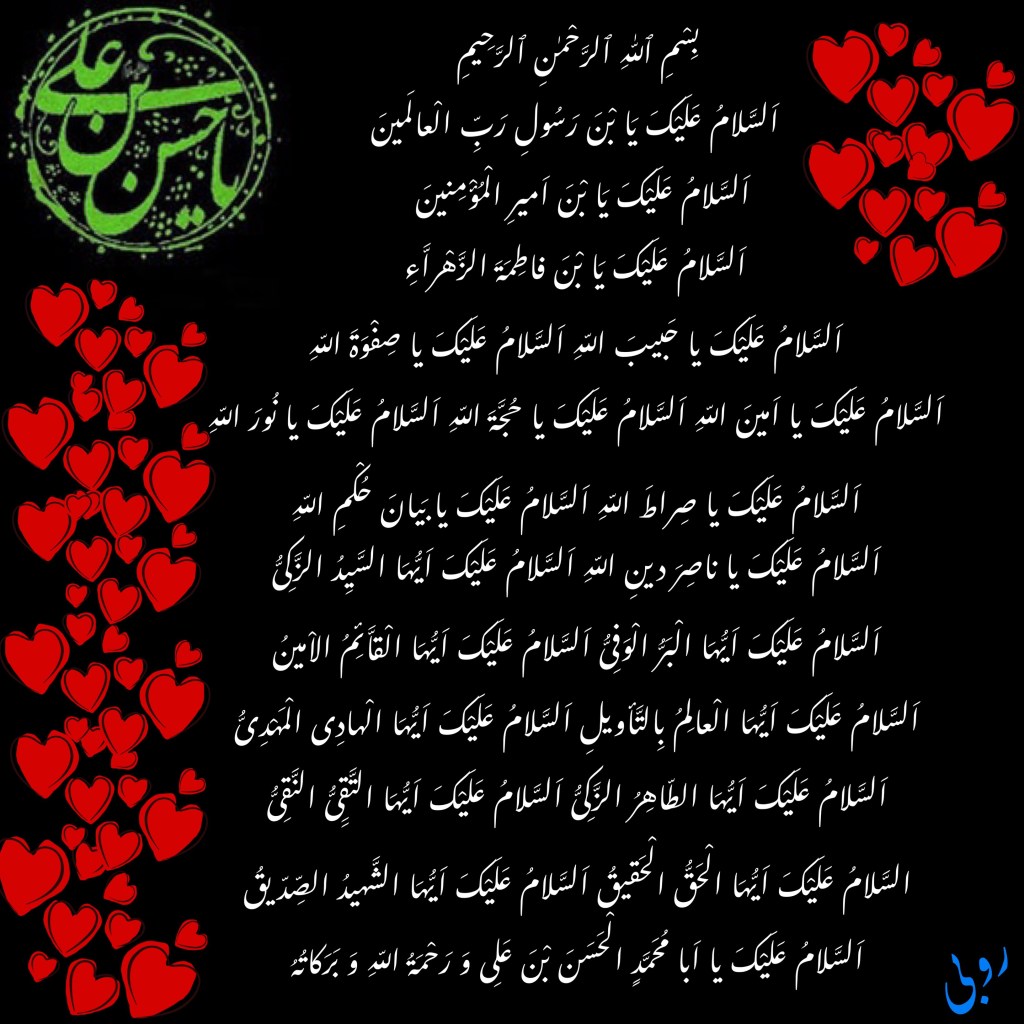 یا حسن بن علی
بِسْمِ ٱللهِ ٱلرَّحْمٰنِ ٱلرَّحِیمِ
اَلسَّلامُ عَلَیْکَ یَا بْنَ رَسُولِ رَبِّ الْعالَمینَ
اَلسَّلامُ عَلَیْکَ یَا بْنَ اَمیرِ الْمُؤْمِنینَ
اَلسَّلامُ عَلَیْکَ یَا بْنَ فاطِمَةَ الزَّهْرآَءِ
اَلسَّلامُ عَلَیْکَ یا حَبیبَ اللهِ اَلسَّلامُ عَلَیْکَ یا صِفْوَةَ اللهِ
اَلسَّلامُ عَلَیْکَ یا اَمینَ اللهِ اَلسَّلامُ عَلَیْکَ یا حُجَّةَ اللهِ اَلسَّلامُ عَلَیْکَ یا نُورَ اللهِ
اَلسَّلامُ عَلَیْکَ یا صِراطَ اللهِ اَلسَّلامُ عَلَیْکَ یابَیانَ حُکْمِ اللهِ
اَلسَّلامُ عَلَیْکَ یا ناصِرَ دینِ اللهِ اَلسَّلامُ عَلَیْکَ اَیُّهَا السَّیِدُ الزَّکِىُّ
اَلسَّلامُ عَلَیْکَ اَیُّهَا الْبَرُّ الْوَفِىُّ اَلسَّلامُ عَلَیْکَ اَیُّهَا الْقآَئِمُ الاْمینُ
اَلسَّلامُ عَلَیْکَ اَیُّهَا الْعالِمُ بِالتَّأویلِ اَلسَّلامُ عَلَیْکَ اَیُّهَا الْهادِى الْمَهْدِىُّ
اَلسَّلامُ عَلَیْکَ اَیُّهَا الطّاهِرُ الزَّکِىُّ اَلسَّلامُ عَلَیْکَ اَیُّهَا التَّقِىُّ النَّقِىُّ
السَّلامُ عَلَیْکَ اَیُّهَا الْحَقُّ الْحَقیقُ اَلسَّلامُ عَلَیْکَ اَیُّهَا الشَّهیدُ الصِّدّیقُ
اَلسَّلامُ عَلَیْکَ یا اَبا مُحَمَّدٍ الْحَسَنَ بْنَ عَلِى وَ رَحْمَةُ اللهِ وَ بَرَکاتُهُ